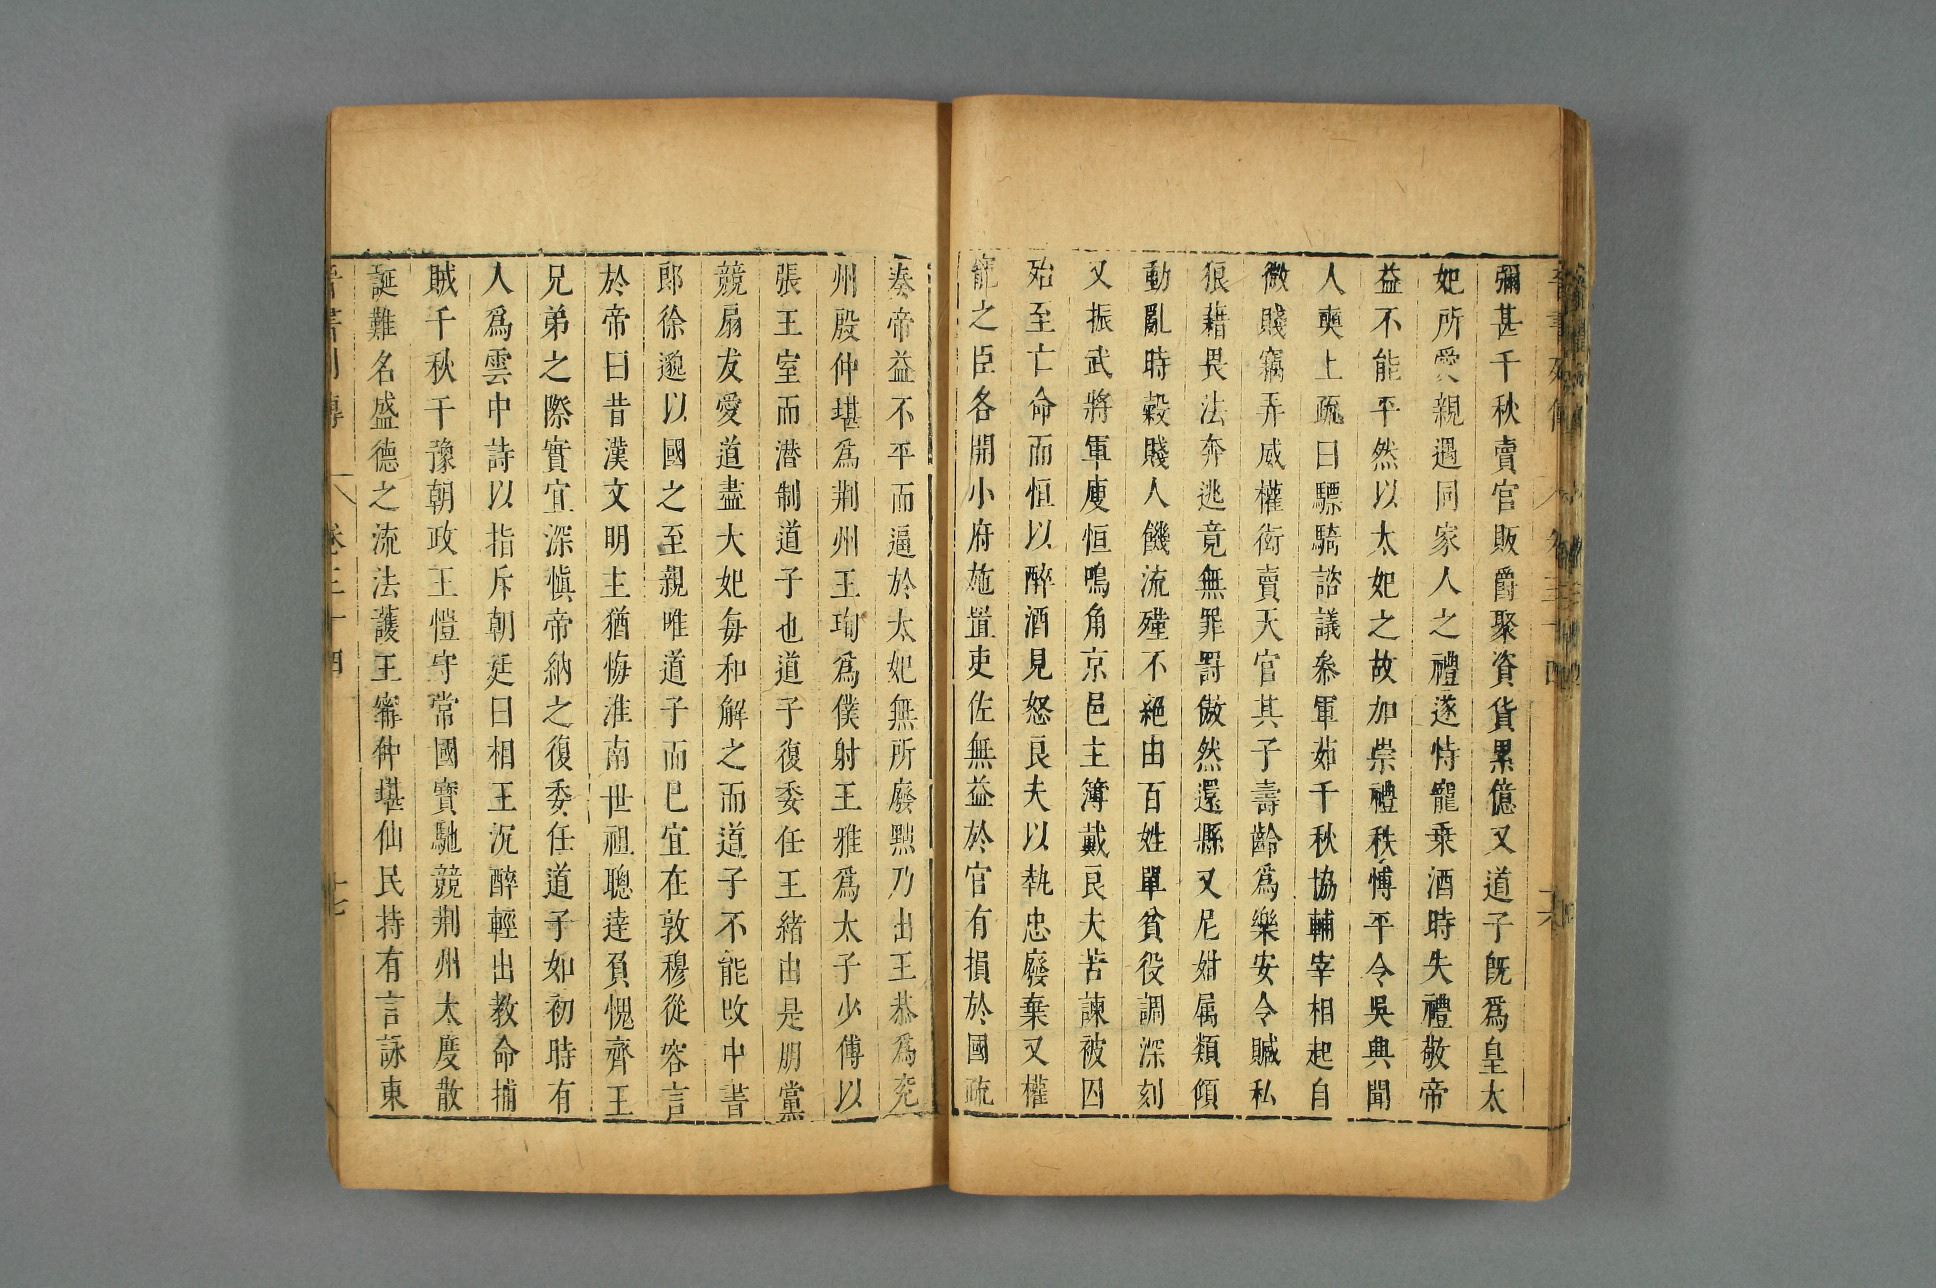 彌甚千秋賣官販爵聚資貨累億又道子旣爲皇太
妃所愛親遇同家人之禮遂恃寵乗酒時失禮敬帝
益不能平然以太妃之故加崇禮秩愽平令吳興聞
人奭上疏曰驃騎諮議叅軍茹千秋協輔宰相起自
微賤竊弄威權衒賣天官其子壽齡爲樂安令贓私
狼藉畏法奔逃竟無罪罸傲然還縣又尼姏属類傾
動亂時穀賤人饑流殣不絕由百姓單貧役調深刻
又振武將軍庾恒鳴角京邑主簿戴良夫苦諫被囚
殆至亡命而恒以醉酒見怒良夫以執忠廢棄又權
寵之臣各開小府施置吏佐無益於官有損於國疏
奏帝益不平而逼於太妃無所廢黜乃出王恭爲兖
州殷仲堪爲荆州王珣爲僕射王雅爲太子少傅以
張王室而潜制道子也道子復委任王緒由是朋黨
競扇友愛道盡太妃每和解之而道子不能攺中書
郎徐邈以國之至親唯道子而巳宜在敦穆從容言
於帝曰昔漢文明主猶悔淮南世祖聰達負愧齊王
兄弟之際實宜深愼帝納之復委任道子如初時有
人爲雲中詩以指斥朝廷曰相王沉醉輕出教命捕
賊千秋干豫朝政王愷守常國寶馳競荆州太慶散
誕難名盛德之流法護王甯仲堪仙民持有言詠東
晋書列傳 卷三十四 十七